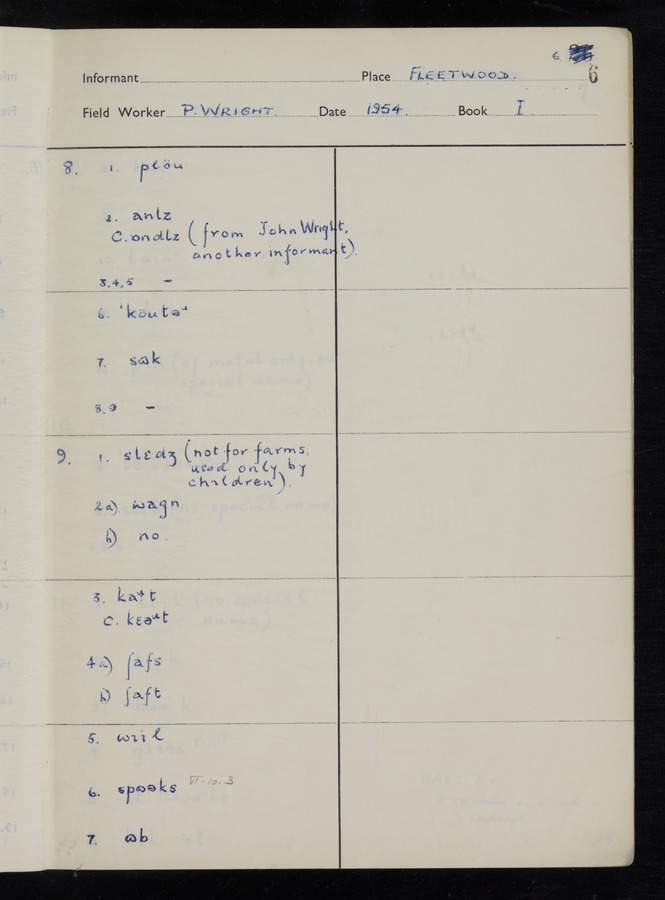 6.
Informant Place FLEETWOOD. 6
Field Worker P. WRIGHT Date 1954. Book I
8. 1. plöu
2. anlz
C. ɒndlz (from John Wright,
another informant).
3,4,5 –
6. ˈköutəʴ
7. sɷk
8,9 –
9. 1. slɛdʒ (not for farms,
used only by
children).
2a) wagn
b) no.
3. kaʴt
C. kɛəʴt
4a) ʃafs
b) ʃaft
5. wiil
6. spɷəks VI.10.3
7. ɷb